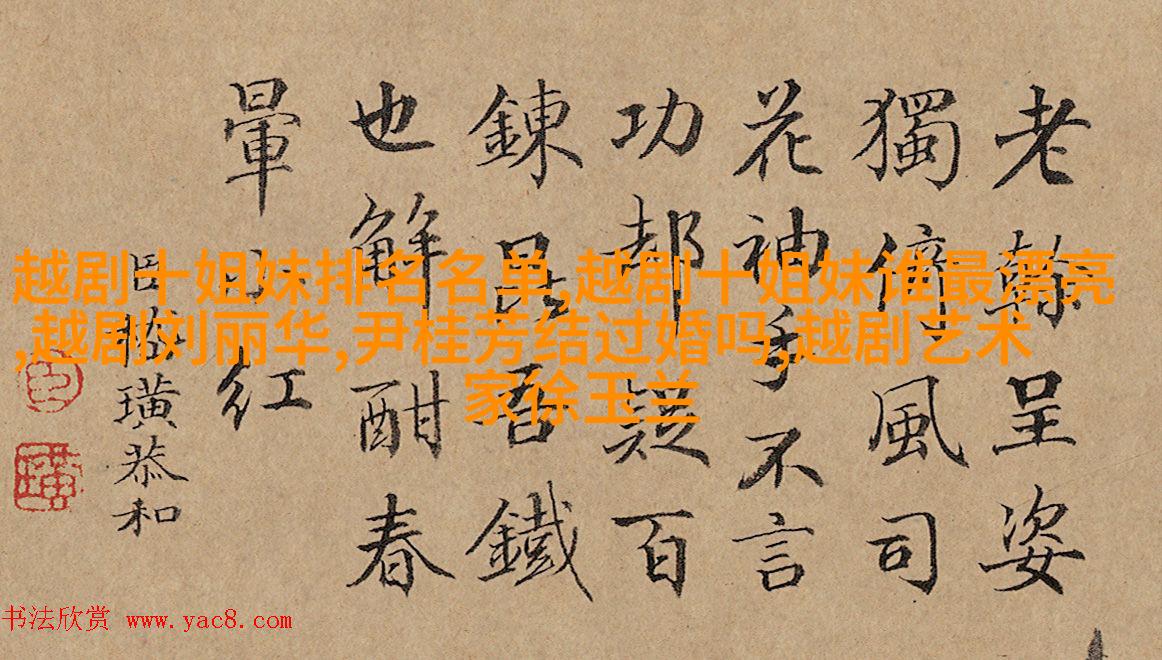 越剧十姐妹排名名单,越剧十姐妹谁最漂亮
,越剧刘丽华,尹桂芳结过婚吗,越剧艺术
家徐玉兰
老呈姿
獨倚風司
花神手不言
功却疑百
鍊昆吾鐵
也解酣春
暈紅
臣璜恭和
书法欣赏 www.yac8.com